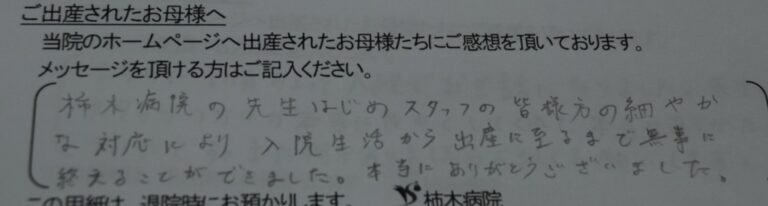 ご出産されたお母様へ
当院のホームページへ出産されたお母様たちにご感想を頂いております。
メッセージを頂ける方はご記入ください。
柿木病院の先生はじめスタッフの皆様方の細やか
な対応により 入院生活から出産に至るまで無事に
終えることができました。本当にありがとうございました。
この用紙は、退院時にお預かりします。 柿木病院